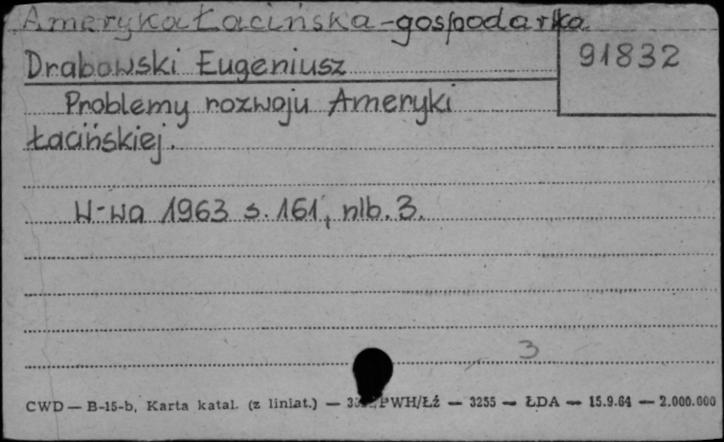 Ameryka Łacińska - gospodarka
91832
Drabowski Eugeniusz
Problemy rozwoju Ameryki
Łacińskiej.
W-wa 1963 s. 161, nlb. 3.
3
CWD — B-15-b, Karta katal. (z liniat.) — PWH/Łź — 3255 — ŁDA — 15.9.64 — 2.000.000